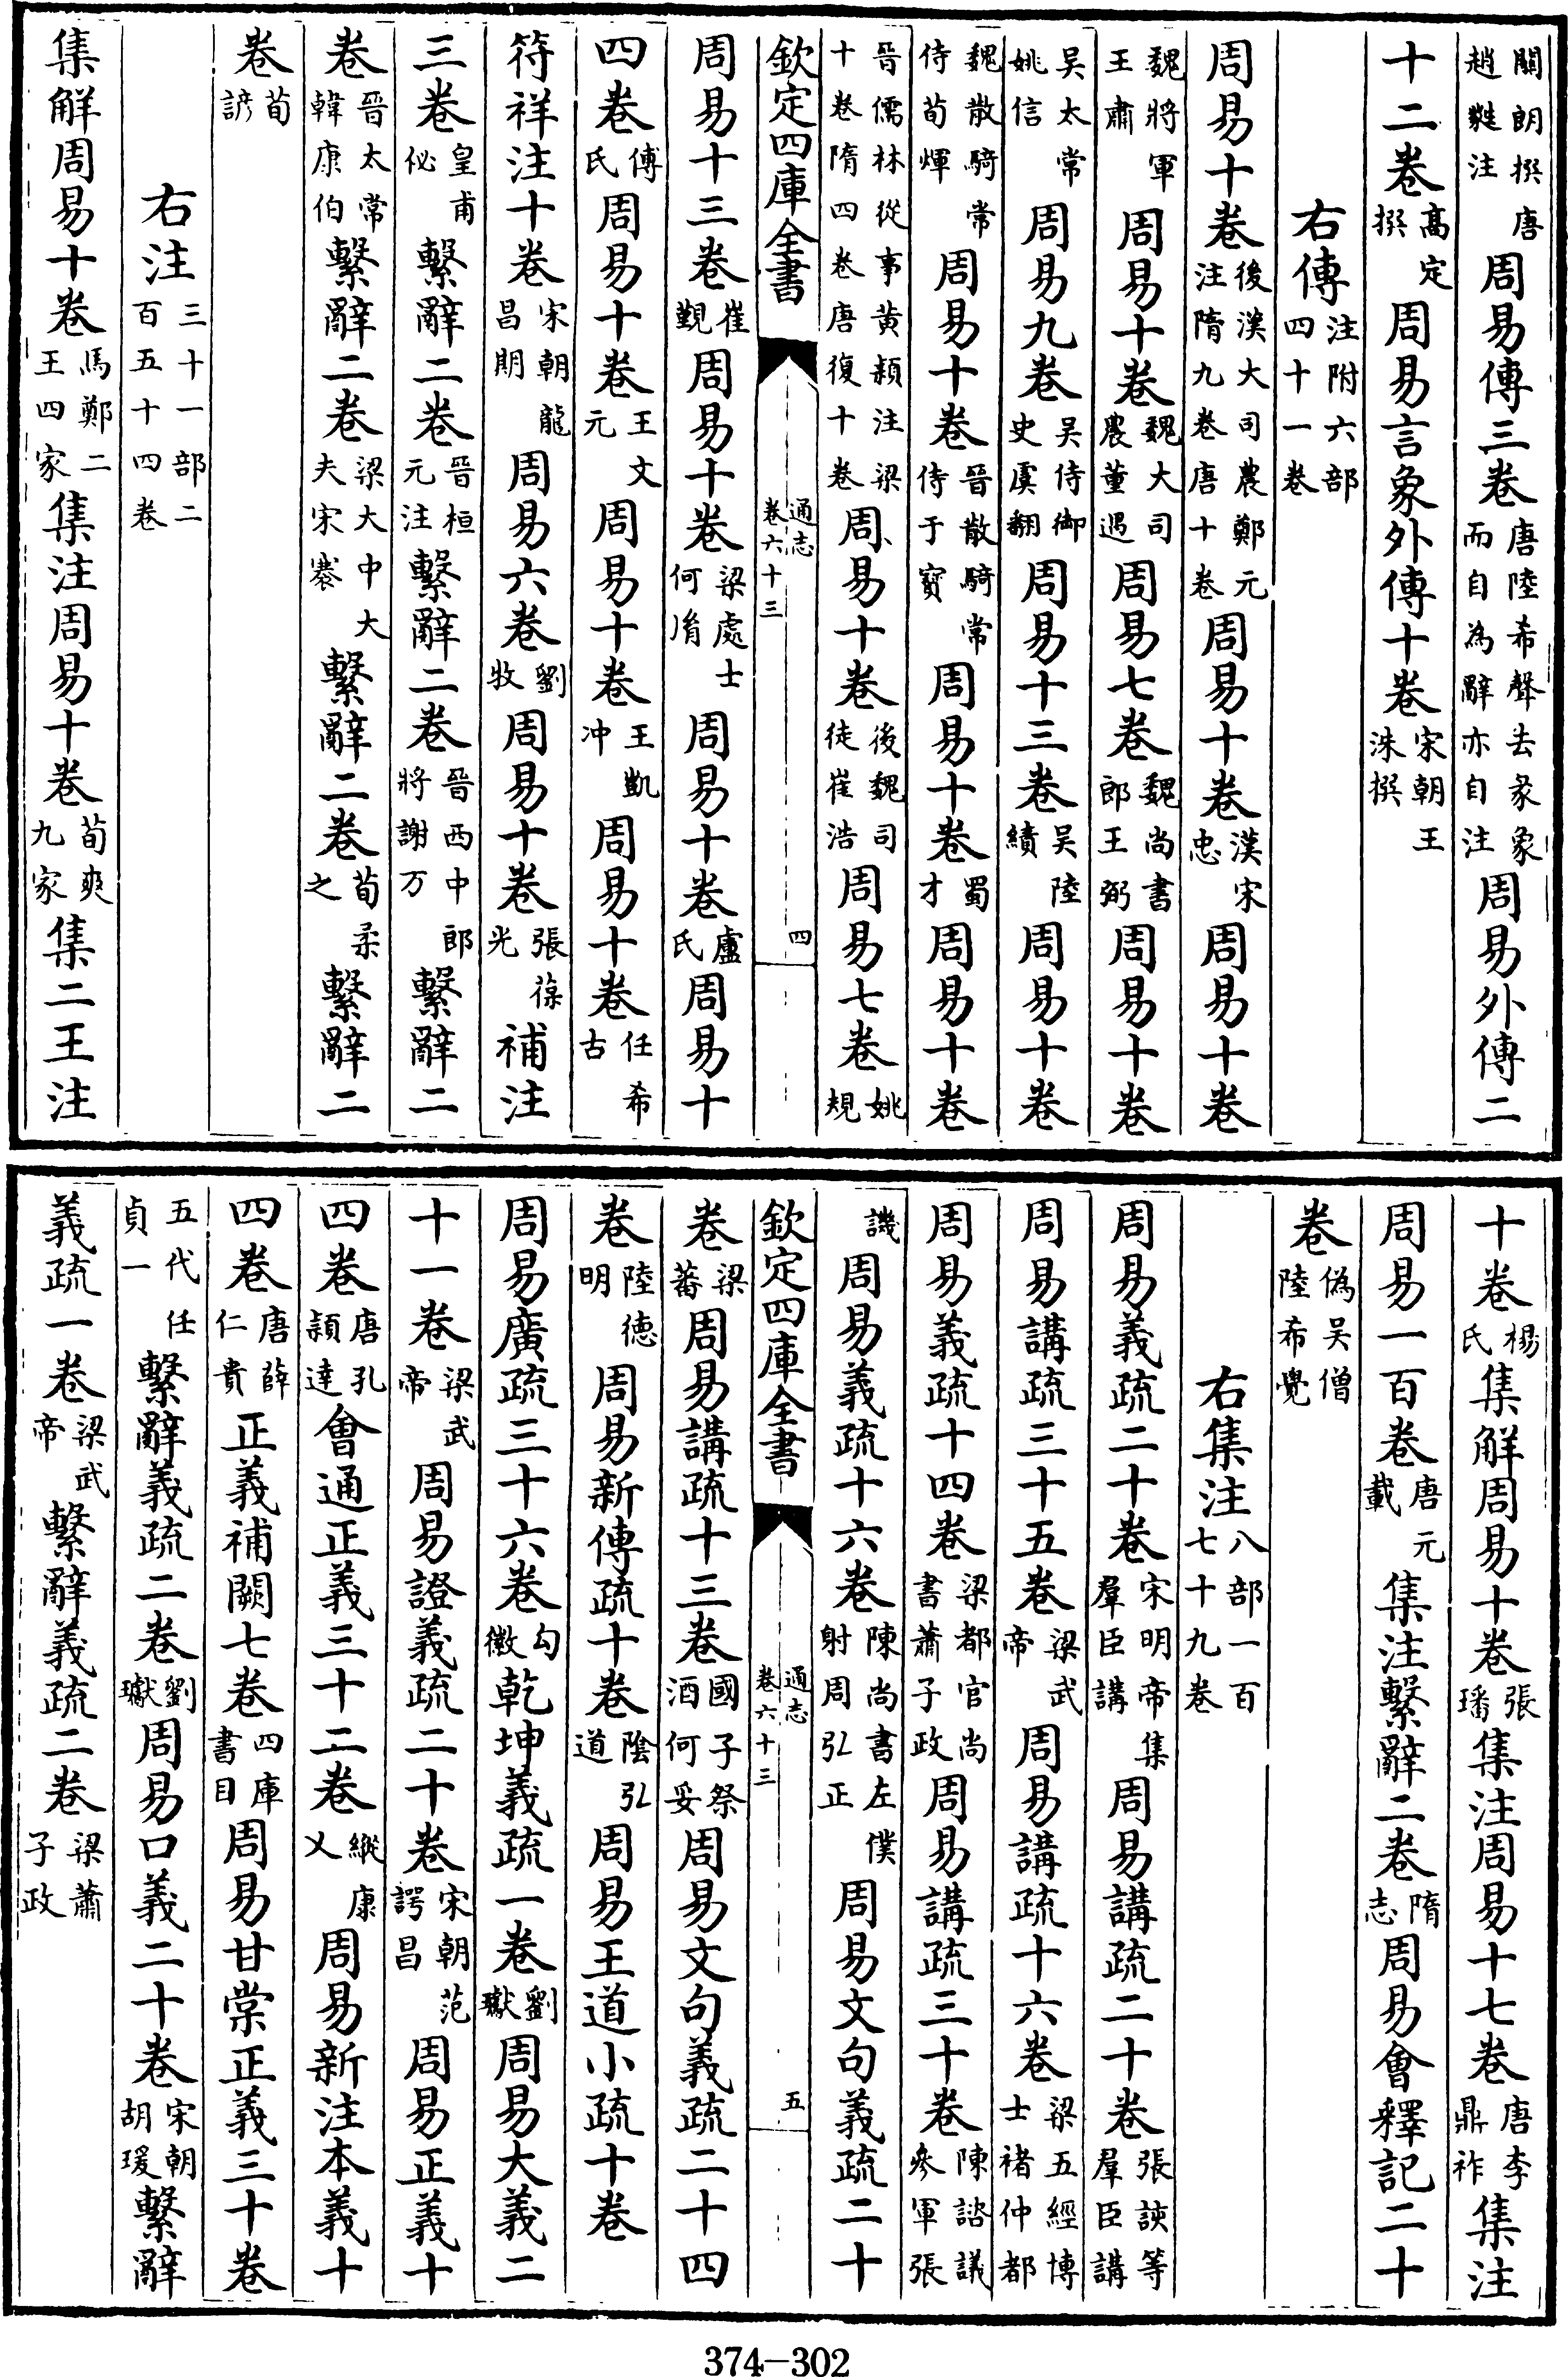 關朗撰唐趙蕤注周易傳三卷唐陸希聲去彖象而自為辭亦自注周易外傳二
十二卷高定撰周易言象外傳十卷宋朝王洙撰
右傳注附六部四十一卷
周易十卷後漢大司農鄭元注隋九卷唐十卷周易十卷漢宋忠周易十卷
魏將軍王肅周易十卷魏大司農董遇周易七卷魏尚書郎王弼周易十卷
吳太常姚信周易九卷吳侍御史虞翻周易十三卷吳陸績周易十卷
魏散騎常侍荀煇周易十卷晉散騎常侍于寶周易十卷蜀才周易十卷
晉儒林從事黃穎注梁十卷隋四卷唐復十卷周易十卷後魏司徒崔浩周易七卷姚規
欽定四庫全書 通志卷六十三 四
周易十三卷崔覲周易十卷梁處士何胤周易十卷盧氏周易十
四卷傅氏周易十卷王文元周易十卷王凱冲周易十卷任希古
符祥注十卷宋朝龍昌期周易六卷劉牧周易十卷張葆光補注
三卷皇甫佖繫辭二卷晉桓元注繫辭二卷晉西中郎將謝万繫辭二
卷晉太常韓康伯繫辭二卷梁大中大夫宋褰繫辭二卷荀柔之繫辭二
卷荀諺
右注三十一部二百五十四卷
集解周易十卷馬鄭二王四家集注周易十卷荀爽九家集二王注
十卷楊氏集解周易十卷張璠集注周易十七卷唐李鼎祚集注
周易一百卷唐元載集注繫辭二卷隋志周易會釋記二十
卷偽吳僧陸希覺
右集注八部一百七十九卷
周易義疏二十卷宋明帝集羣臣講周易講疏二十卷張該等羣臣講
周易講疏三十五卷梁武帝周易講疏十六卷梁五經博士褚仲都
周易義疏十四卷梁都官尚書蕭子政周易講疏三十卷陳諮議參軍張
譏周易義疏十六卷陳尚書左僕射周弘正周易文句義疏二十
欽定四庫全書 通志卷六十三 五
卷梁蕃周易講疏十三卷國子祭酒何妥周易文句義疏二十四
卷陸德明周易新傳疏十卷陰弘道周易王道小疏十卷
周易廣疏三十六卷勾微乾坤義疏一卷劉瓛周易大義二
十一卷梁武帝周易證義疏二十卷宋朝范諤昌周易正義十
四卷唐孔穎達會通正義三十二卷縱康乂周易新注本義十
四卷唐薛仁貴正義補闕七卷四庫書目周易甘棠正義三十卷
五代任貞一繫辭義疏二卷劉瓛周易口義二十卷宋朝胡瑗繫辭
義疏一卷梁武帝繫辭義疏二卷梁蕭子政
374-302